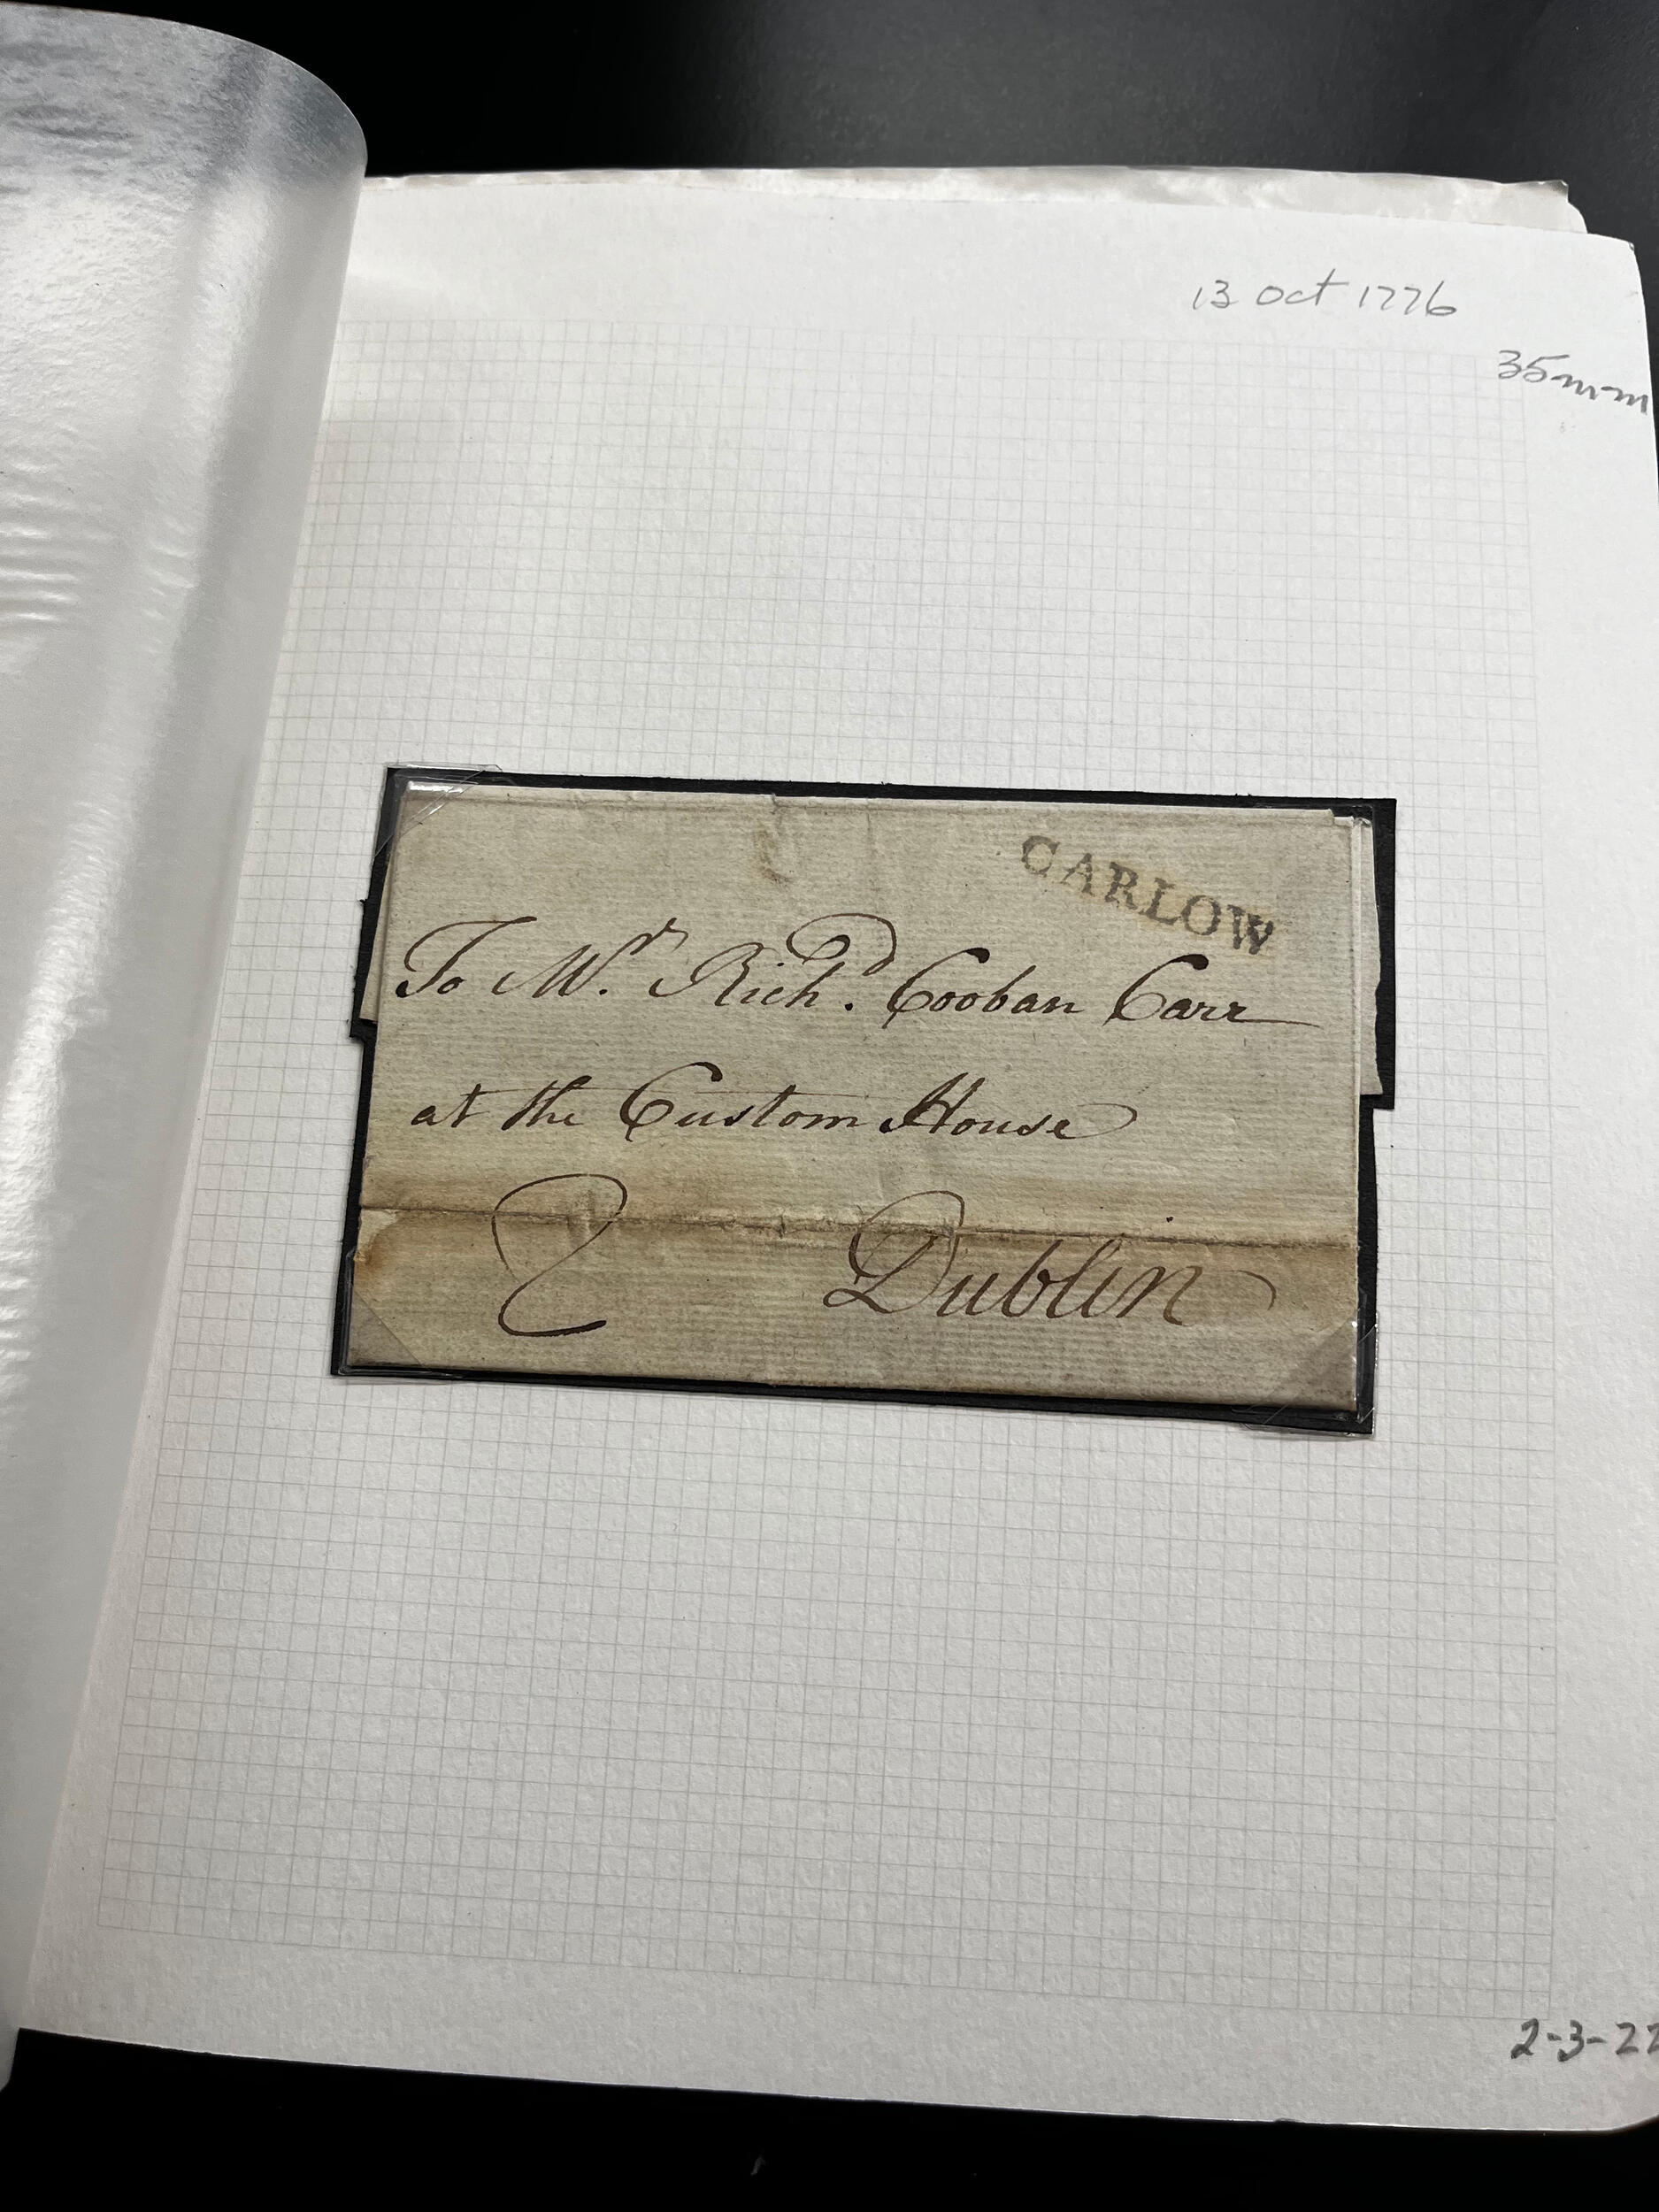 13 Oct 1776
35mm
CARLOW
To Mr. Richd. Cooban Carr
at the Custom House
2 Dublin
2-3-22